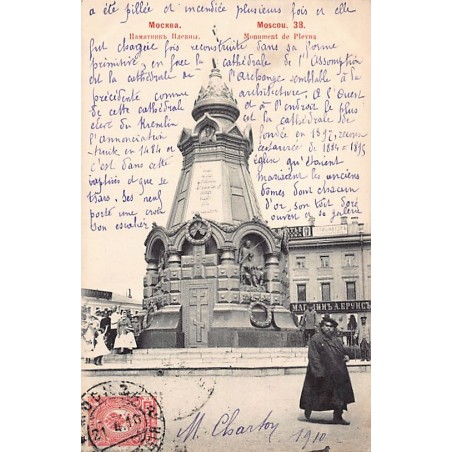 a été pillée et incendiée plusieurs fois et elle
Москва. Moscou. 38.
Памятникъ Плевны. Monument de Plevna
fut changée fois reconstruite dans sa forme
primitive, en face la cathédrale de l'Assomption
est la cathédrale de l'Archange semblable à la
précédente comme architecture. A l'Ouest
de cette cathédrale et à l'endroit le plus
élevé du Kremlin de
l'annonciation fondée en 1397, recons
truite en 1484 et restaurée de 1884 à 1895
c'est dans cette église qu'étaient
baptisés et que se mariaient les anciens
tsars. Ses neuf dômes dont chacun
porte une croix d'or, son toit doré
son escalier ouvert et sa galerie
МАГАЗИНЪ А. БРУНСЪ
21 4 10
M. Charloy 1910